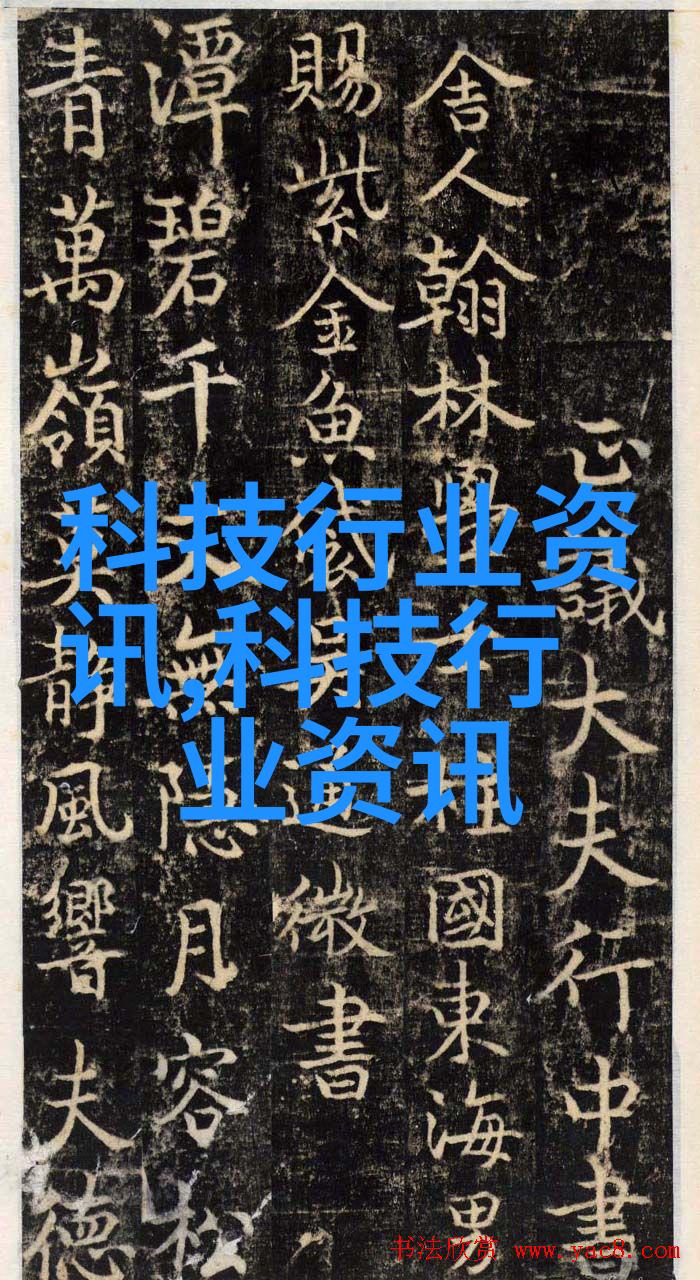 正議大夫行中書
舍人翰林學士柱國東海男
賜紫金魚袋吳通微書
潭碧千無隱月容松
青萬嶺靜風響夫德
科技行业资
讯,科技行
业资讯
书法欣赏 www.yac8.com